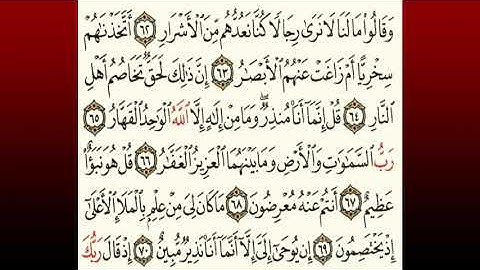 وَقَالُوا۟ مَا لَنَا لَا نَرَىٰ رِجَالًا كُنَّا نَعُدُّهُم مِّنَ ٱلْأَشْرَارِ ٦٢ أَتَّخَذْنَٰهُمْ
سِخْرِيًّا أَمْ زَاغَتْ عَنْهُمُ ٱلْأَبْصَٰرُ ٦٣ إِنَّ ذَٰلِكَ لَحَقٌّ تَخَاصُمُ أَهْلِ
ٱلنَّارِ ٦٤ قُلْ إِنَّمَآ أَنَا۠ مُنذِرٌ ۖ وَمَا مِنْ إِلَٰهٍ إِلَّا ٱللَّهُ ٱلْوَٰحِدُ ٱلْقَهَّارُ ٦٥
رَبُّ ٱلسَّمَٰوَٰتِ وَٱلْأَرْضِ وَمَا بَيْنَهُمَا ٱلْعَزِيزُ ٱلْغَفَّٰرُ ٦٦ قُلْ هُوَ نَبَؤٌا۟
عَظِيمٌ ٦٧ أَنتُمْ عَنْهُ مُعْرِضُونَ ٦٨ مَا كَانَ لِىَ مِنْ عِلْمٍۭ بِٱلْمَلَإِ ٱلْأَعْلَىٰٓ
إِذْ يَخْتَصِمُونَ ٦٩ إِن يُوحَىٰٓ إِلَىَّ إِلَّآ أَنَّمَآ أَنَا۠ نَذِيرٌ مُّبِينٌ ٧٠ إِذْ قَالَ رَبُّكَ